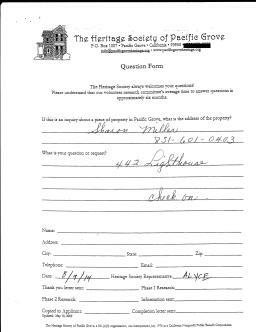 The Heritage Society of Pacific Grove
P.O. Box 1007 • Pacific Grove • California • 93950
info@pacificgroveheritage.org • www.pacificgroveheritage.org
Question Form
The Heritage Society always welcomes your questions!
Please understand that our volunteer research committee's average time to answer questions is
approximately six months.
If this is an inquiry about a piece of property in Pacific Grove, what is the address of the property?
Sharon Miller
831-601-0403
What is your question or request?
442 Lighthouse
check on
Name:
Address:
City: State: Zip:
Telephone: Email:
Date: 8/9/14 Heritage Society Representative: ALYCE
Thank you letter sent: Phase 1 Research:
Phase 2 Research: Information sent:
Copied to Applicant: Completion letter sent: